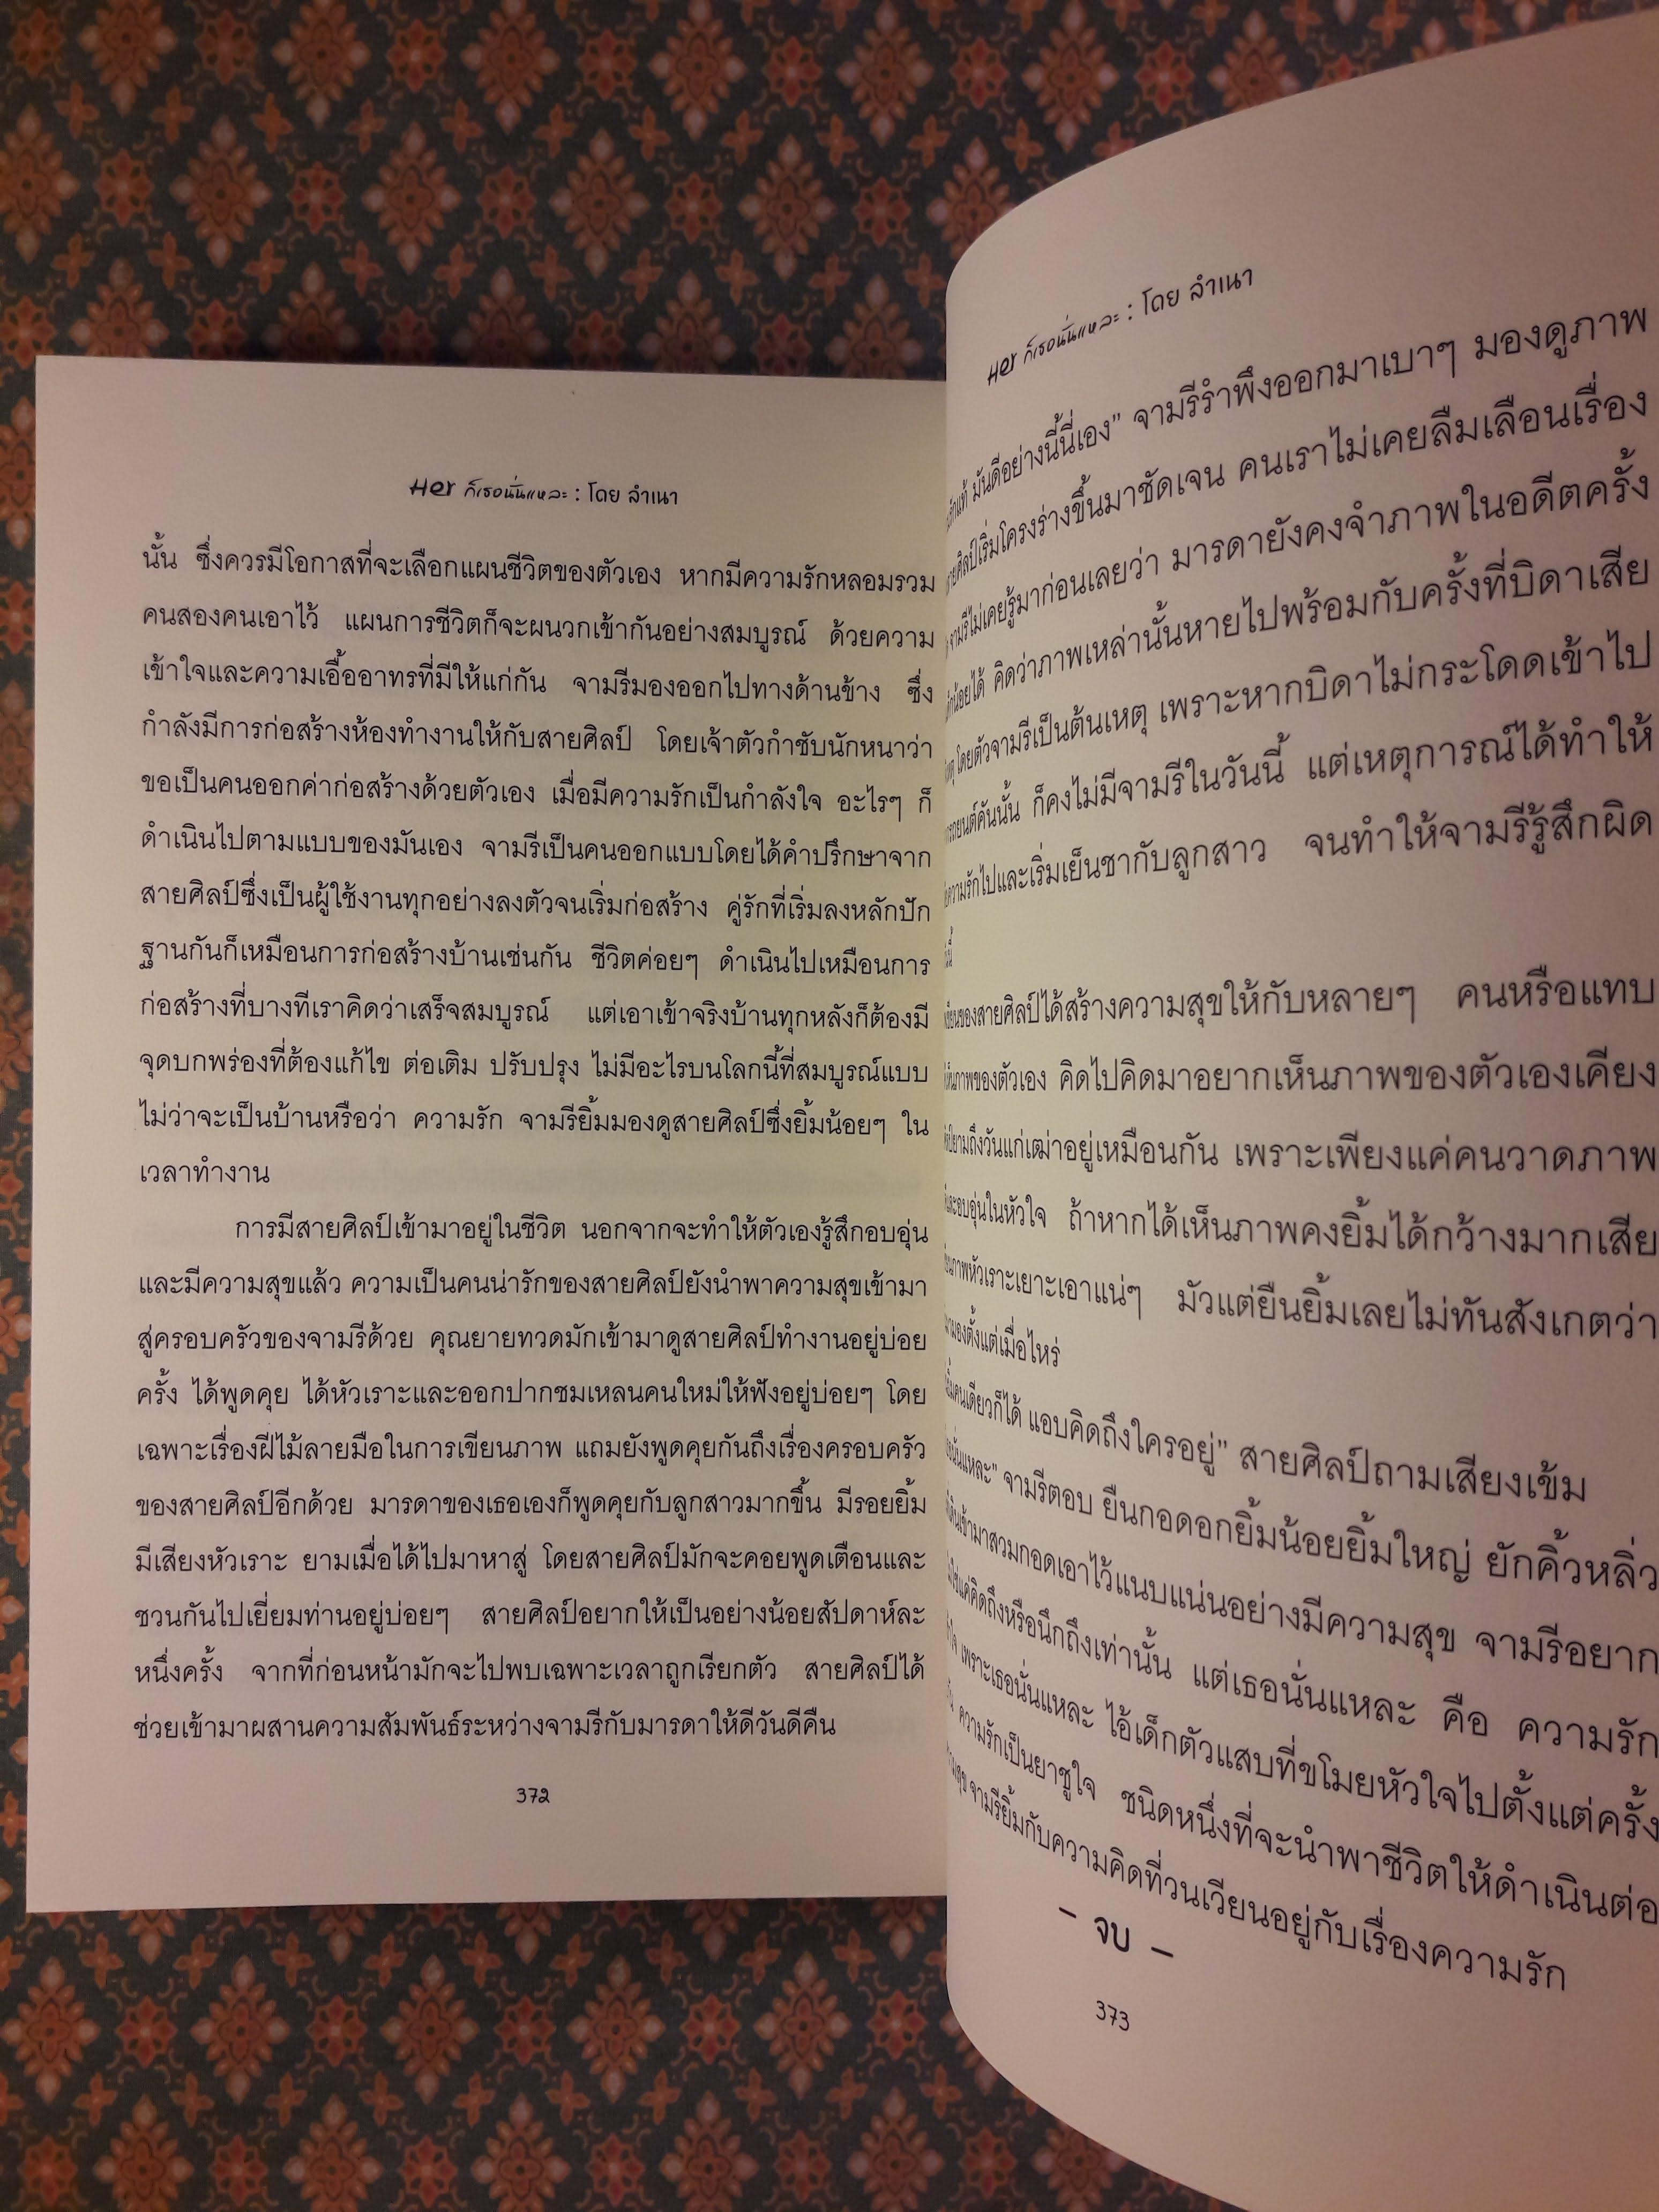 Her ก็เธอนั่นแหละ : โดย ลำเนา
นั้น ซึ่งควรมีโอกาสที่จะเลือกแผนชีวิตของตัวเอง หากมีความรักหลอมรวม
คนสองคนเอาไว้ แผนการชีวิตก็จะผนวกเข้ากันอย่างสมบูรณ์ ด้วยความ
เข้าใจและความเอื้ออาทรที่มีให้แก่กัน จามรีมองออกไปทางด้านข้าง ซึ่ง
กำลังมีการก่อสร้างห้องทำงานให้กับสายศิลป์ โดยเจ้าตัวกำชับนักหนาว่า
ขอเป็นคนออกค่าก่อสร้างด้วยตัวเอง เมื่อมีความรักเป็นกำลังใจ อะไรๆ ก็
ดำเนินไปตามแบบของมันเอง จามรีเป็นคนออกแบบโดยได้คำปรึกษาจาก
สายศิลป์ซึ่งเป็นผู้ใช้งานทุกอย่างลงตัวจนเริ่มก่อสร้าง คู่รักที่เริ่มลงหลักปัก
ฐานกันก็เหมือนการก่อสร้างบ้านเช่นกัน ชีวิตค่อยๆ ดำเนินไปเหมือนการ
ก่อสร้างที่บางทีเราคิดว่าเสร็จสมบูรณ์ แต่เอาเข้าจริงบ้านทุกหลังก็ต้องมี
จุดบกพร่องที่ต้องแก้ไข ต่อเติม ปรับปรุง ไม่มีอะไรบนโลกนี้ที่สมบูรณ์แบบ
ไม่ว่าจะเป็นบ้านหรือว่า ความรัก จามรียิ้มมองดูสายศิลป์ซึ่งยิ้มน้อยๆ ใน
เวลาทำงาน
การมีสายศิลป์เข้ามาอยู่ในชีวิต นอกจากจะทำให้ตัวเองรู้สึกอบอุ่น
และมีความสุขแล้ว ความเป็นคนน่ารักของสายศิลป์ยังนำพาความสุขเข้ามา
สู่ครอบครัวของจามรีด้วย คุณยายทวดมักเข้ามาดูสายศิลป์ทำงานอยู่บ่อย
ครั้ง ได้พูดคุย ได้หัวเราะและออกปากชมเหลนคนใหม่ให้ฟังอยู่บ่อยๆ โดย
เฉพาะเรื่องฝีไม้ลายมือในการเขียนภาพ แถมยังพูดคุยกันถึงเรื่องครอบครัว
ของสายศิลป์อีกด้วย มารดาของเธอเองก็พูดคุยกับลูกสาวมากขึ้น มีรอยยิ้ม
มีเสียงหัวเราะ ยามเมื่อได้ไปมาหาสู่ โดยสายศิลป์มักจะคอยพูดเตือนและ
ชวนกันไปเยี่ยมท่านอยู่บ่อยๆ สายศิลป์อยากให้เป็นอย่างน้อยสัปดาห์ละ
หนึ่งครั้ง จากที่ก่อนหน้ามักจะไปพบเฉพาะเวลาถูกเรียกตัว สายศิลป์ได้
ช่วยเข้ามาผสานความสัมพันธ์ระหว่างจามรีกับมารดาให้ดีวันดีคืน
372
Her ก็เธอนั่นแหละ : โดย ลำเนา
มันดีอย่างนี้นี่เอง” จามรีรำพึงออกมาเบาๆ มองดูภาพ
เริ่มโครงร่างขึ้นมาชัดเจน คนเราไม่เคยลืมเลือนเรื่อง
จามรีไม่เคยรู้มาก่อนเลยว่า มารดายังคงจำภาพในอดีตครั้ง
คิดว่าภาพเหล่านั้นหายไปพร้อมกับครั้งที่บิดาเสีย
โดยตัวจามรีเป็นต้นเหตุ เพราะหากบิดาไม่กระโดดเข้าไป
รถยนต์คันนั้น ก็คงไม่มีจามรีในวันนี้ แต่เหตุการณ์ได้ทำให้
ความรักไปและเริ่มเย็นชากับลูกสาว จนทำให้จามรีรู้สึกผิด
ของสายศิลป์ได้สร้างความสุขให้กับหลายๆ คนหรือแทบ
ภาพของตัวเอง คิดไปคิดมาอยากเห็นภาพของตัวเองเคียง
ยามถึงวันแก่เฒ่าอยู่เหมือนกัน เพราะเพียงแค่คนวาดภาพ
และอบอุ่นในหัวใจ ถ้าหากได้เห็นภาพคงยิ้มได้กว้างมากเสีย
ภาพหัวเราะเยาะเอาแน่ๆ มัวแต่ยืนยิ้มเลยไม่ทันสังเกตว่า
มามองตั้งแต่เมื่อไหร่
คนเดียวก็ได้ แอบคิดถึงใครอยู่” สายศิลป์ถามเสียงเข้ม
นั่นแหละ” จามรีตอบ ยืนกอดอกยิ้มน้อยยิ้มใหญ่ ยักคิ้วหลิ่ว
เดินเข้ามาสวมกอดเอาไว้แนบแน่นอย่างมีความสุข จามรีอยาก
ใช่แค่คิดถึงหรือนึกถึงเท่านั้น แต่เธอนั่นแหละ คือ ความรัก
เพราะเธอนั่นแหละ ไอ้เด็กตัวแสบที่ขโมยหัวใจไปตั้งแต่ครั้ง
ความรักเป็นยาชูใจ ชนิดหนึ่งที่จะนำพาชีวิตให้ดำเนินต่อ
จามรียิ้มกับความคิดที่วนเวียนอยู่กับเรื่องความรัก
- จบ -
373